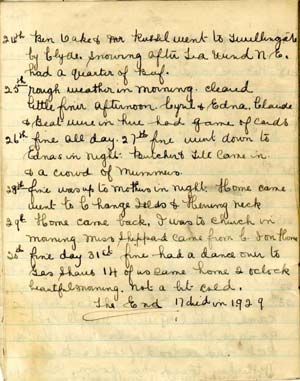 24th Ken Oake & Mr Russel went to Twillingate
by Clyde. Snowing after Tea Wind N.E.
had a quarter of Beef.
25th rough weather in morning. cleared
little finer afternoon Cyril & Edna. Claude
& Beat were in here had game of cards
26th fine all day. 27th fine went down to
Ednas in night. & Till came in
& a crowd of Mummers.
28th fine was up to Mothers in night. Home came
went to Change Islds & Herring Neck
29th Home came back. I was to church in
morning Miss Sheppard came from
30th fine day 31st fine had a dance over to
Shaws 14 of us came home 2 oclock
beautful morning. Not a bit cold.
The End in 1929